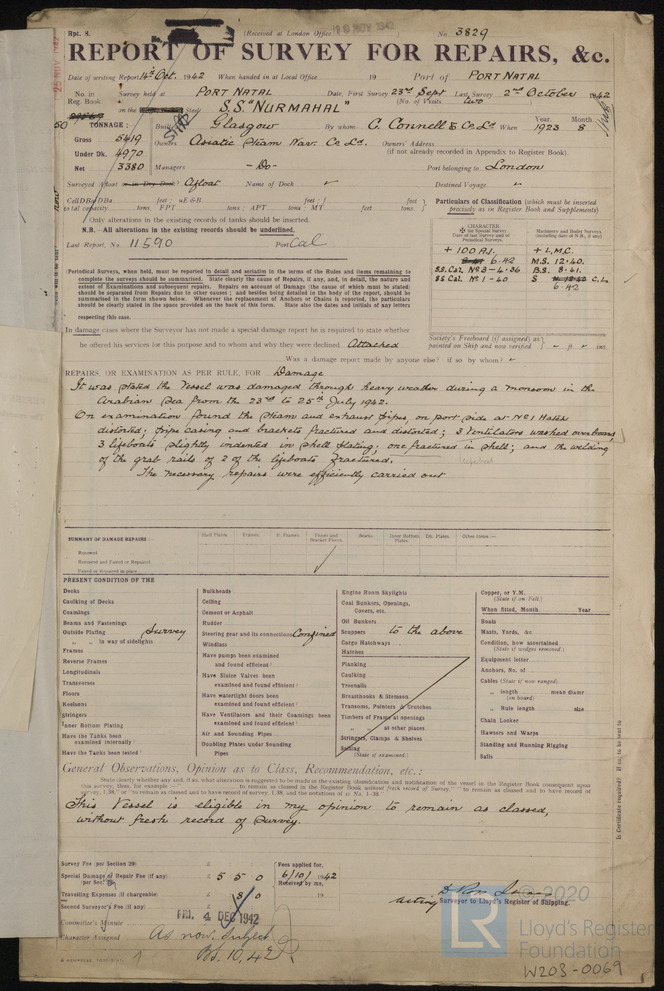 Rpt. 8.
(Received at London Office
10 NOV 1942
No. 3829
REPORT OF SURVEY FOR REPAIRS, &c.
Date of writing Report 14th Oct. 1942 When handed in at Local Office 19 Port of PORT NATAL
No. in Reg. Book.
Survey held at PORT NATAL Date, First Survey 23rd Sept Last Survey 2nd October 1942
(No. of Visits two)
on the Steel S.S "NURMAHAL"
TONNAGE:
Gross 5419
Under Dk. 4970
Net 3380
Built Glasgow By whom C. Connell & Co Ld When 1923 8
Year. Month
Owners Asiatic Steam Nav. Co Ld. Owners' Address
(if not already recorded in Appendix to Register Book).
Managers - Do - Port belonging to London
Surveyed Afloat or in Dry Dock? Afloat Name of Dock Destined Voyage
Only alterations in the existing records of tanks should be inserted.
N.B.- All alterations in the existing records should be underlined.
Last Report, No. 11590 Port Cal
Particulars of Classification (which must be inserted precisely as in Register Book and Supplements)
+ 100 A1.
6.42
SS. Cal. No 3 - 4.36
SS Cal. No 1 - 40
+ L.M.C.
M.S. 12.40.
B.S. 8.41.
S C.L.
6.42
Periodical Surveys, when held, must be reported in detail and seriatim in the terms of the Rules and items remaining to complete the surveys should be summarised. State clearly the cause of Repairs, if any, and, in detail, the nature and extent of Examinations and subsequent repairs. Repairs on account of Damage (the cause of which must be stated) should be separated from Repairs due to other causes; and besides being detailed in the body of the report, should be summarised in the form shown below. Whenever the replacement of Anchors or Chains is reported, the particulars should be clearly stated in the space provided on the back of this form. State also the dates and initials of any letters respecting this case.
In damage cases where the Surveyor has not made a special damage report he is required to state whether
he offered his services for this purpose and to whom and why they were declined Attached
Society's Freeboard (if assigned) as painted on Ship and now verified
Was a damage report made by anyone else? if so by whom?
REPAIRS, OR EXAMINATION AS PER RULE, FOR Damage
It was stated the Vessel was damaged through heavy weather during a monsoon in the
Arabian Sea from the 23rd to 25th July 1942.
On examination found the steam and exhaust pipes on port side at No 1 Hatch
distorted; pipe casing and brackets fractured and distorted; 3 Ventilators washed overboard,
3 lifeboats slightly indented in shell plating; one fractured in shell; and the welding
of the grab rails of 2 of the lifeboats fractured.
The necessary repairs were efficiently carried out
SUMMARY OF DAMAGE REPAIRS:-
Shell Plates. Frames. Floors and Bracket Floors. Beams. Inner Bottom Plates. Dk. Plates. Other Items:-
Renewed
Removed and Faired or Repaired
Faired or Repaired in place
PRESENT CONDITION OF THE
Decks
Caulking of Decks
Coamings
Beams and Fastenings
Outside Plating
" " in way of sidelights
Frames
Reverse Frames
Longitudinals
Transverses
Floors
Keelsons
Stringers
Inner Bottom Plating
Have the Tanks been examined internally?
Have the Tanks been tested?
Survey
Bulkheads
Ceiling
Cement or Asphalt
Rudder
Steering gear and its connections
Windlass
Have pumps been examined and found efficient?
Have Sluice Valves been examined and found efficient?
Have watertight doors been examined and found efficient?
Have Ventilators and their Coamings been examined and found efficient?
Air and Sounding Pipes
Doubling Plates under Sounding Pipes
Confined
Engine Room Skylights
Coal Bunkers, Openings, Covers, etc.
Oil Bunkers
Scuppers
Cargo Hatchways
Hatches
Planking
Caulking
Treenails
Breasthooks & Stemson
Transoms, Pointers & Crutches
Timbers of Frame at openings
" " at other places
Stringers, Clamps & Shelves
Salting
(State if examined.)
to the above
Copper, or Y.M.
(State if on Felt.)
When fitted, Month Year
Boats
Masts, Yards, &c.
Condition, how ascertained
(State if wedges removed)
Equipment letter
Anchors, No. of
Cables (State if now ranged)
" length mean diamr.
(on board)
" Rule length size
Chain Locker
Hawsers and Warps
Standing and Running Rigging
Sails
General Observations, Opinion as to Class, Recommendation, etc.:
This Vessel is eligible in my opinion to remain as classed,
without fresh record of Survey.
Is Certificate required? If so, to be sent to
Survey Fee (per Section 29)
Special Damage or Repair Fee (if any) (per Sec. 29) 5 5 0
Travelling Expenses (if chargeable)
Second Surveyor's Fee (if any)
Fees applied for, 6/10/1942
Received by me, 19
Acting Surveyor to Lloyd's Register of Shipping.
Committee's Minute FRI. 4 DEC 1942
Character Assigned As now. Subject
BS. 10,42
© 2020
LR
Lloyd's Register
Foundation
W203-0069